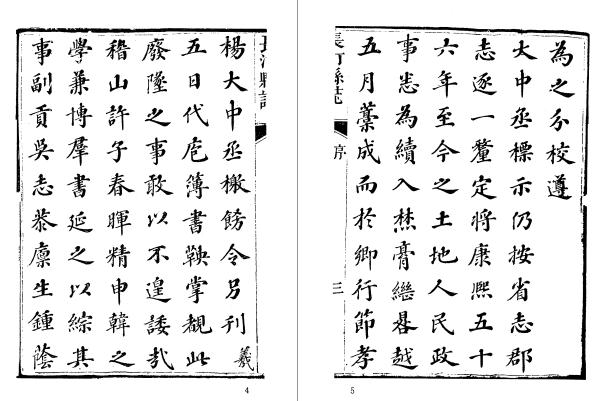 長汀縣誌
楊大中丞檄飭令另刊羲
五日代庖簿書鞅掌覩此
廢墜之事敢以不遑諉哉
稽山許子春暉精申韓之
學兼博羣書延之以綜其
事副貢吳志恭廩生鍾蔭
4
為之分校遵
大中丞標示仍按省志郡
志逐一釐定將康熙五十
六年至今之土地人民政
事悉為續入焚膏繼晷越
五月藁成而於鄉行節孝
長汀縣誌
序
三
5